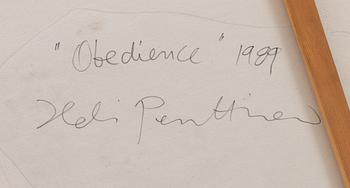 "Obedience" 1989
Penttinen